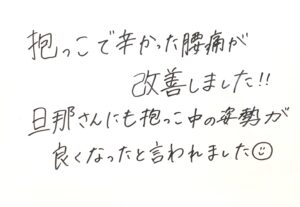 抱っこで辛かった腰痛が
改善しました!!
旦那さんにも抱っこ中の姿勢が
良くなったと言われました☺